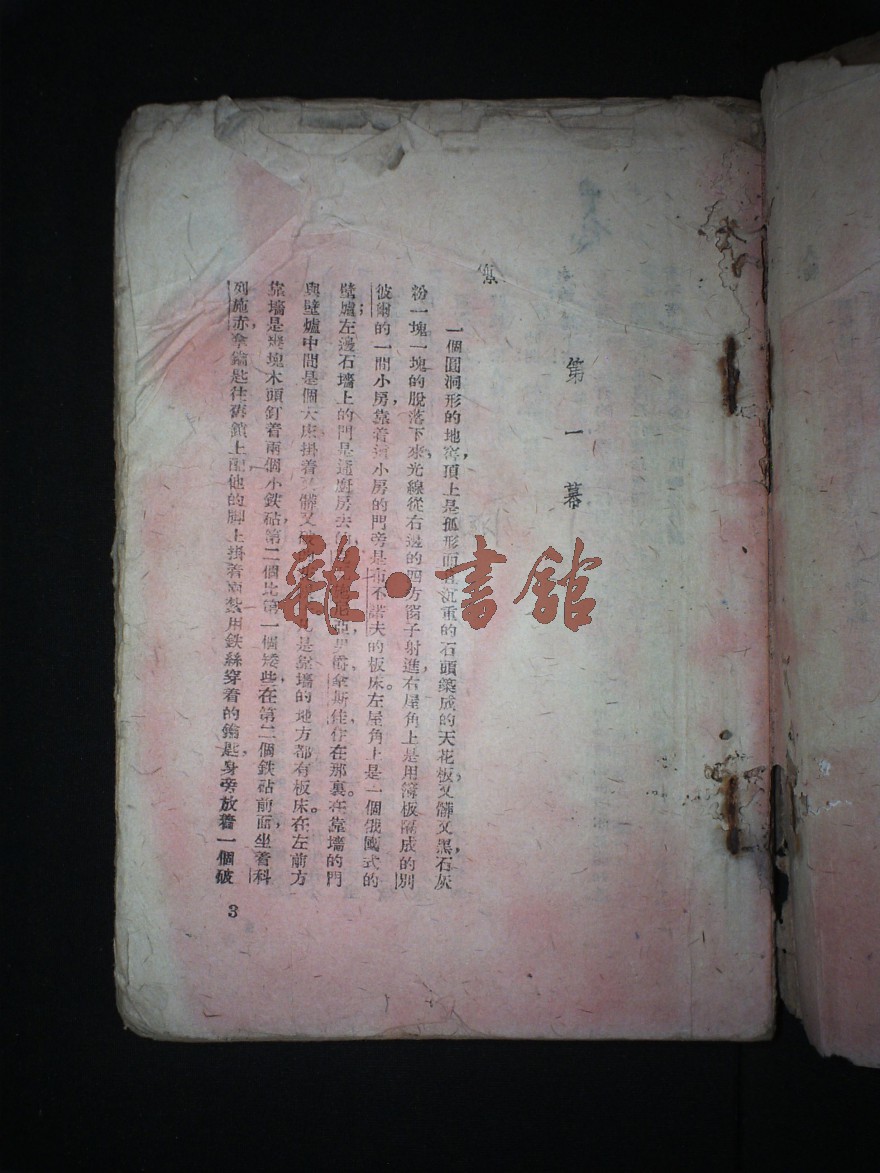 第一幕
一個圓洞形的地窖，頂上是孤形而且沉重的石頭築成的天花板，又髒又黑，石灰
粉一塊一塊的脫落下來，光線從右邊的四方窗子射進，右屋角上是用薄板隔成的別
彼爾的一間小房，靠着這小房的門旁是布不諾夫的板床。左屋角上是一個俄國式的
壁爐；左邊石墻上的門是通廚房去的，男爵，拿斯佳住在那裏。在靠墻的門
與壁爐中間是個大床，掛着又髒又破是靠墻的地方都有板床。在左前方
靠墻是幾塊木頭釘着兩個小鉄砧，第二個比第一個矮些，在第二個鉄砧前面，坐着科
列施赤，拿鑰匙往舊鎖上配，他的脚上掛着兩盤用鉄絲穿着的鑰匙，身旁放着一個破
3
雜·書館